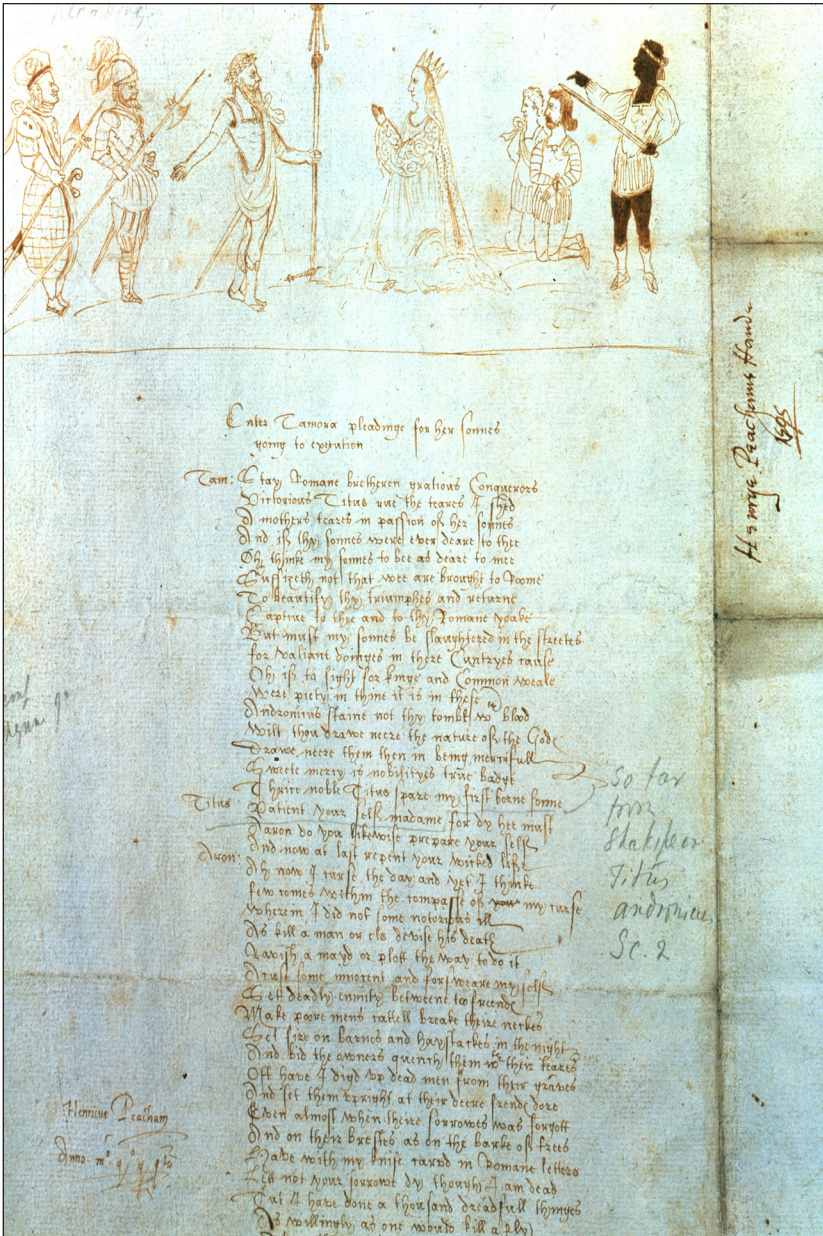 pleading
Enter Tamora pleadinge for her sonnes
going to execution
Tam: Stay Romane bretheren gratious Conquerors
Victorious Titus rue the teares I shed
A mothers teares in passion of her sonnes
And if thy sonnes were ever deare to thee
Oh thinke my sonnes to bee as deare to mee
Suffizeth not that wee are brought to Roome
To beautify thy triumphes and returne
Captiue to thee and to thy Romane yoake
But must my sonnes be slaughtered in the streetes
for valiant doinges in there Cuntryes cause
Oh if to fight for kinge and Common weale
Were piety in thine it is in these
Andronicus staine not thy tombe wth blood
Wilt thou drawe neere the nature of the Gods
Drawe neere them then in being mercifull
Sweete mercy is nobilityes true badge
Thrice noble Titus spare my first borne sonne
Titus: Patient your self madame for dy hee must
Aaron do you likewise prepare your self
And now at last repent your wicked life
Aron: Ah now I curse the day and yet I thinke
few comes within the compasse of my curse
Wherein I did not some notorious ill
As kill a man or els devise his death
Ravish a mayd or plott the way to do it
Acuse some innocent and forsweare my self
Set deadly enmity betweene to freendes
Make poore mens cattell breake theire neckes
Set fire on barnes and haystackes in the night
And bid the owners quench them wth their teares
Oft have I digd vp dead men from their graves
And set them vpright at their deere frends dore
Even almost when theire sorrowes was forgott
And on their brestes as on the barke of trees
Have with my knife carvd in Romane letters
Lett not your sorrowe dy though I am dead
Tut I have done a thousand dreadfull thinges
As willingly as one would kill a fly
so far
from
Shakspear
Titus
Andronicus
Sc. 2
Henrye Peachams Hande
1595
Henricus Peacham
Anno mo qo g qto